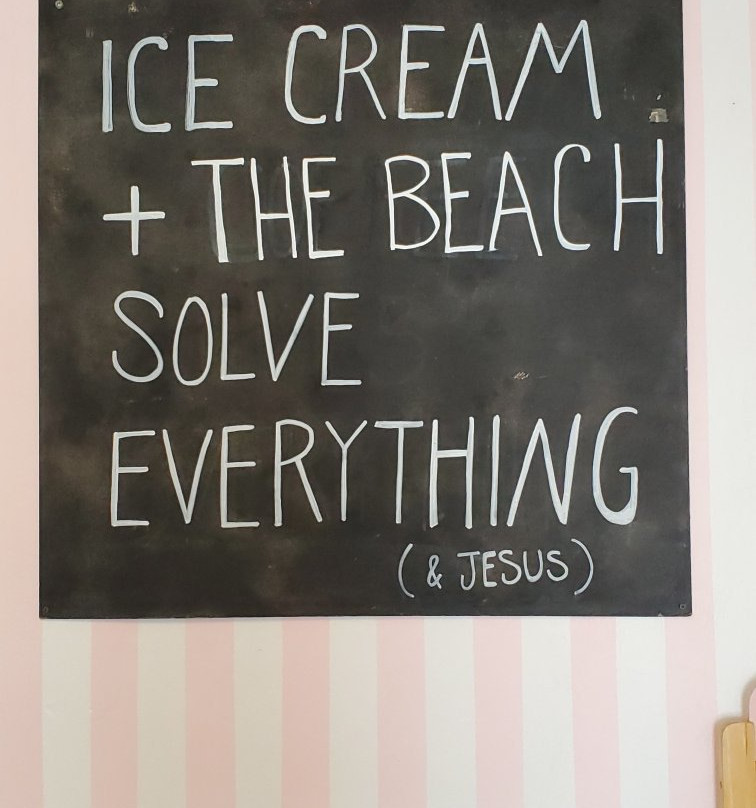 ICE CREAM
+ THE BEACH
SOLVE
EVERYTHING
(& JESUS)